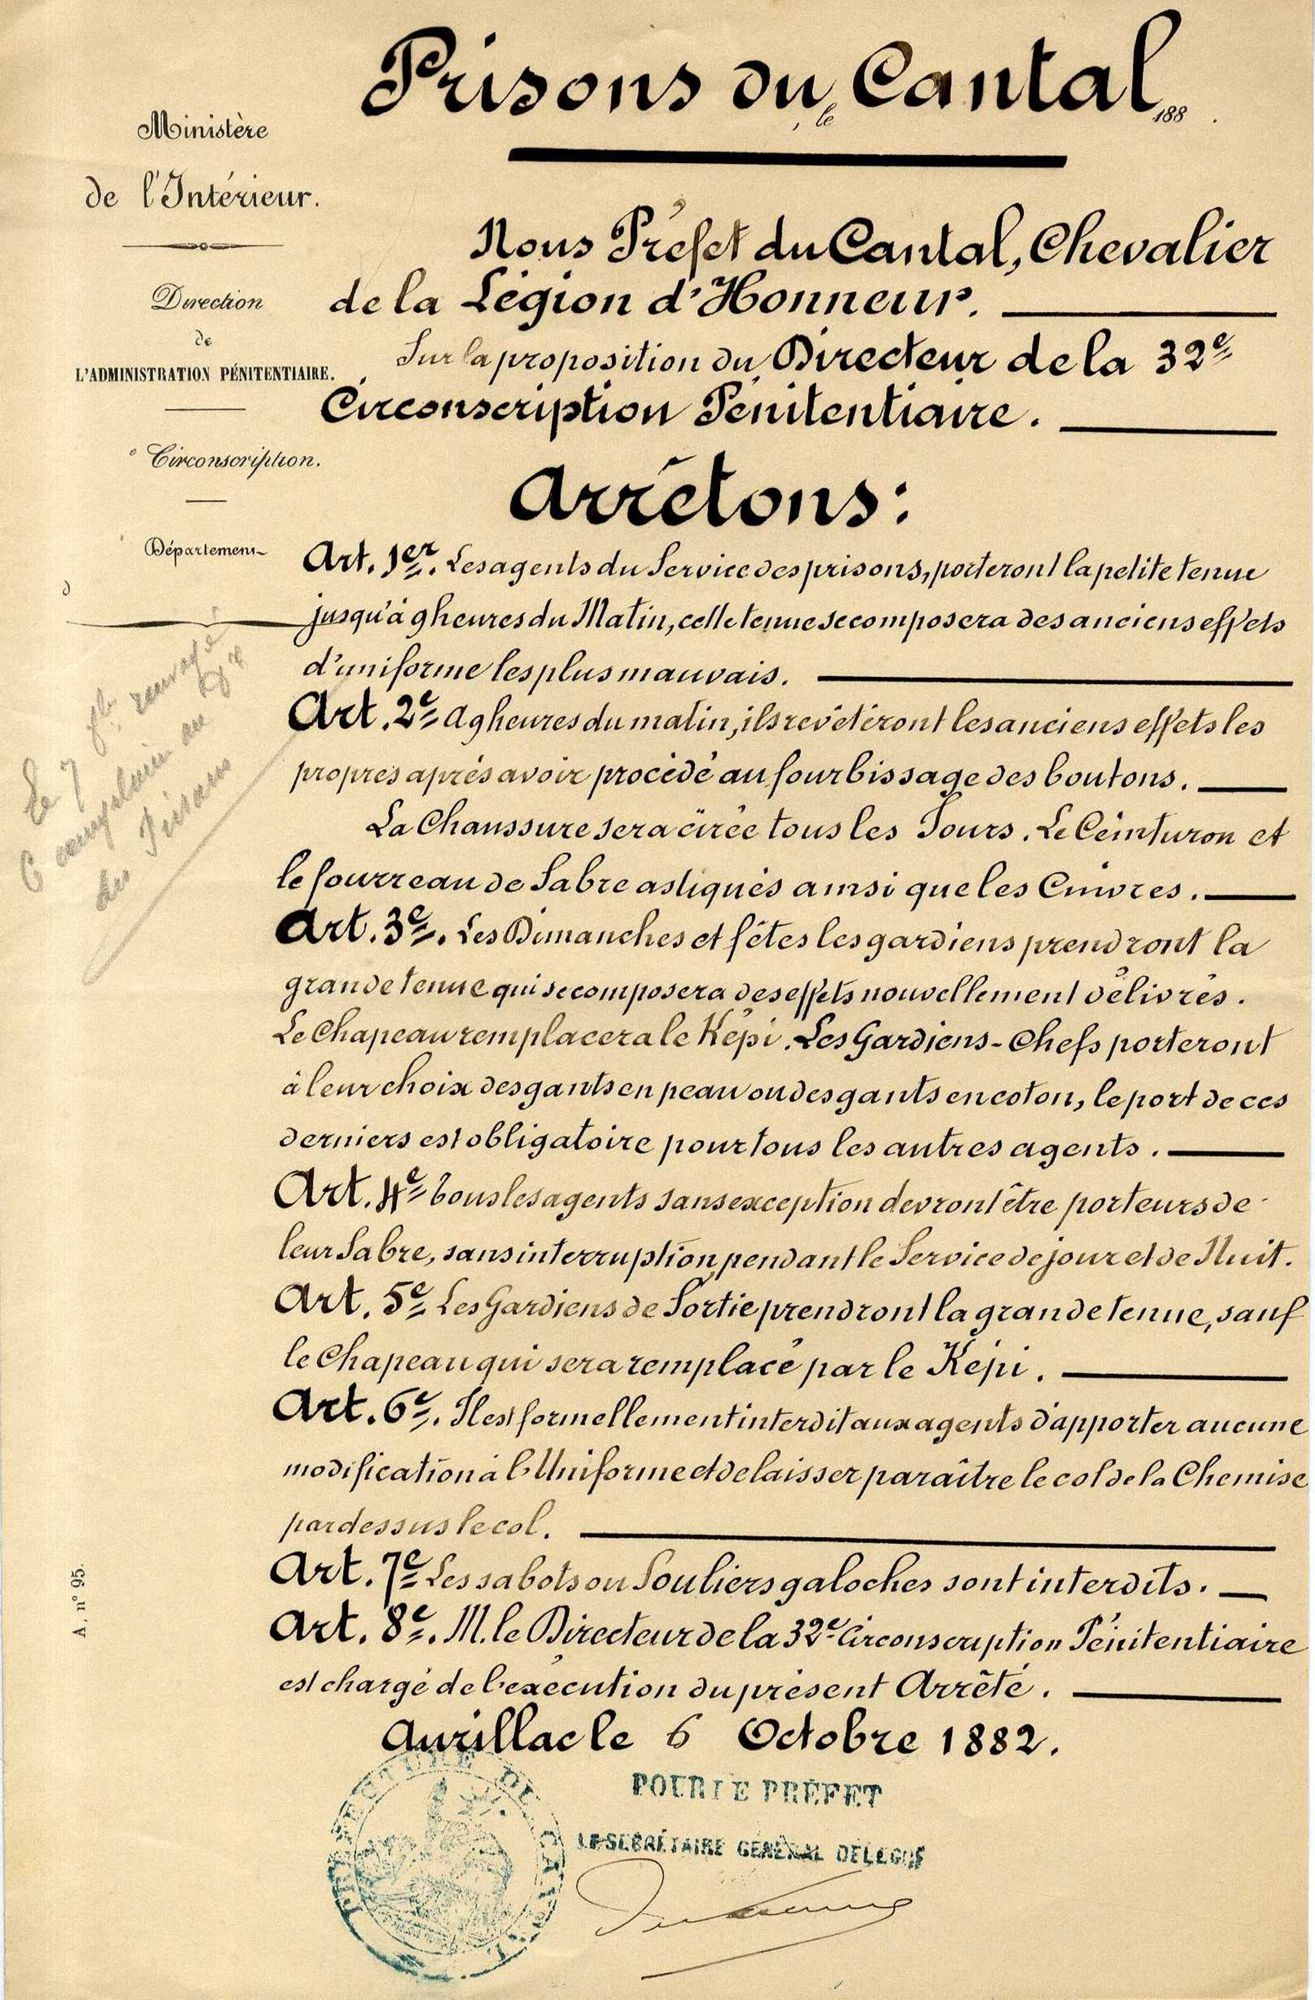 Prisons du Cantal
, le 188 .
Ministère
de l'Intérieur.
Direction
de
L'ADMINISTRATION PÉNITENTIAIRE.
e Circonscription.
Département
d
Nous Préfet du Cantal, Chevalier
de la Légion d'Honneur.
Sur la proposition du Directeur de la 32e
Circonscription Pénitentiaire.
Arrêtons:
Art. 1er. Les agents du Service des prisons, porteront la petite tenue
jusqu'à 9 heures du Matin, cette tenue se composera des anciens effets
d'uniforme les plus mauvais.
Art. 2e A 9 heures du matin, ils revêtiront les anciens effets les
propres après avoir procédé au fourbissage des boutons.
La Chaussure sera cirée tous les Jours. Le Ceinturon et
le fourreau de Sabre astiqués ainsi que les Cuivres.
Art. 3e. Les Dimanches et fêtes les gardiens prendront la
grande tenue qui se composera des effets nouvellement délivrés.
Le Chapeau remplacera le Képi. Les Gardiens-Chefs porteront
à leur choix des gants en peau ou des gants en coton, le port de ces
derniers est obligatoire pour tous les autres agents.
Art. 4e Tous les agents sans exception devront être porteurs de
leur Sabre, sans interruption pendant le Service de jour et de Nuit.
Art. 5e Les Gardiens de Sortie prendront la grande tenue, sauf
le Chapeau qui sera remplacé par le Képi.
Art. 6e. Il est formellement interdit aux agents d'apporter aucune
modification à l'Uniforme et de laisser paraître le col de la Chemise
par dessus le col.
Art. 7e Les sabots ou Souliers galoches sont interdits.
Art. 8e. M. le Directeur de la 32e Circonscription Pénitentiaire
est chargé de l'exécution du présent Arrêté.
Aurillac le 6 Octobre 1882.
Le 7 renvoyé
6 au
des Prisons
A. n° 95.
POUR LE PRÉFET
LE SECRÉTAIRE GÉNÉRAL DÉLÉGUÉ
PRÉFECTURE DU CANTAL